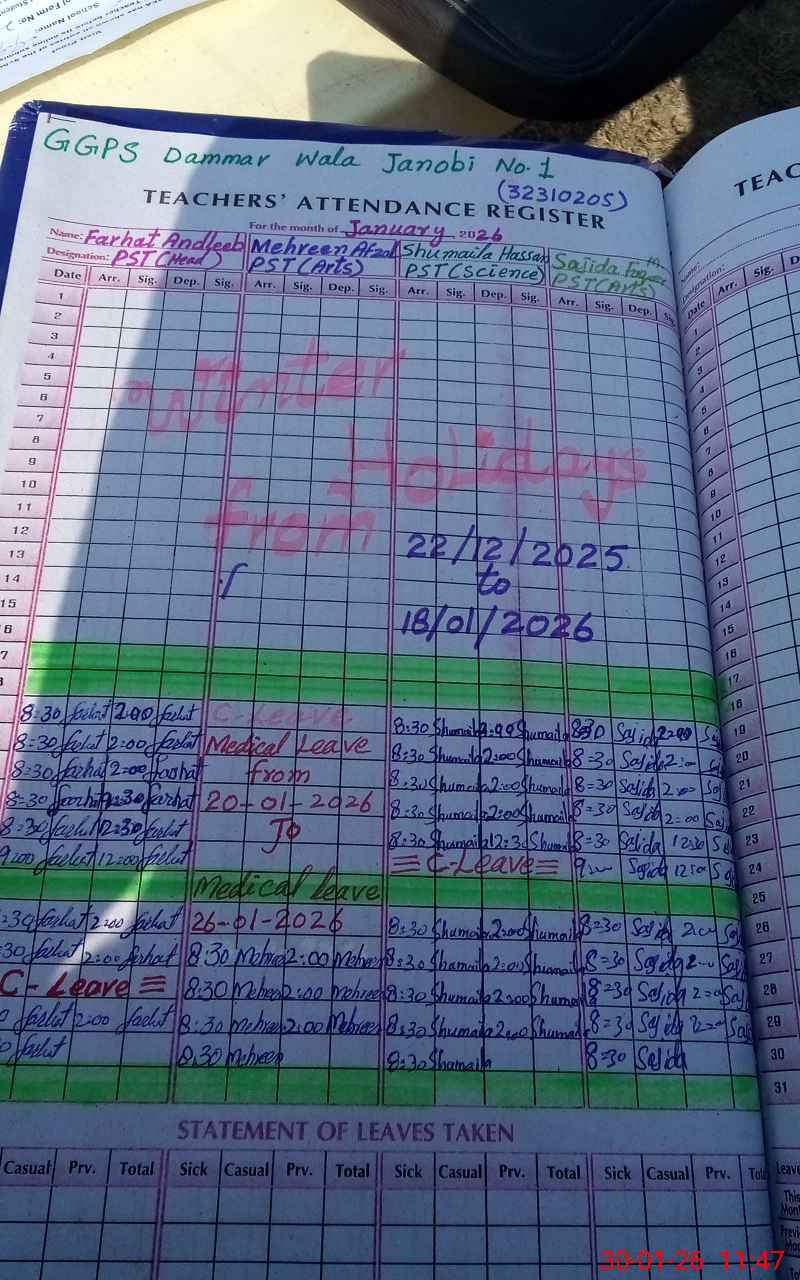 GGPS Dammar Wala Janobi No.1
(32310205)
TEACHERS' ATTENDANCE REGISTER
For the month of January 2026
Name: Farhat Andleeb Mehreen Afzal Shumaila Hassan Sajida
Designation: PST(Head) PST(Arts) PST(Science) PST(Arts)
Date Arr. Sig. Dep. Sig. Arr. Sig. Dep. Sig. Arr. Sig. Dep. Sig. Arr. Sig. Dep.
1
2
3
4
5
6
7
8
9
10
11
12
13
14
15
16
Winter
Holidays
from
22/12/2025
to
18/01/2026
8:30 farhat 2:00 farhat C-Leave 8:30 Shumaila 2:00 Shumaila 8:30 Sajida 2:00
8:30 farhat 2:00 farhat Medical Leave 8:30 Shumaila 2:00 Shumaila 8=30 Sajida 2:00
8:30 farhat 2:00 farhat from 8:30 Shumaila 2:00 Shumaila 8=30 Sajida 2:00
8:30 farhat 2:30 farhat 20-01-2026 8:30 Shumaila 2:00 Shumaila 8=30 Sajida 2:00
8:30 farhat 2:30 farhat To 8:30 Shumaila 12:30 Shumaila 8=30 Sajida 12:30
9:00 farhat 12:00 farhat C-Leave 9:00 Sajida 12:00
Medical leave
:30 farhat 2:00 farhat 26-01-2026 8:30 Shumaila 2:00 Shumaila 8=30 Sajida 2:00
30 farhat 2:00 farhat 8:30 Mehreen 2:00 Mehreen 8:30 Shumaila 2:00 Shumaila 8=30 Sajida 2:00
C-Leave 8:30 Mehreen 2:00 Mehreen 8:30 Shumaila 2:00 Shumaila 8=30 Sajida 2:00
farhat 2:00 farhat 8:30 Mehreen 2:00 Mehreen 8:30 Shumaila 2:00 Shumaila 8=30 Sajida 2:00
farhat 8:30 Mehreen 8:30 Shumaila 8=30 Sajida
STATEMENT OF LEAVES TAKEN
Casual Prv. Total Sick Casual Prv. Total Sick Casual Prv. Total Sick Casual Prv.
TEAC
Name:
Designation:
Date Arr. Sig.
1
2
3
4
5
6
7
8
9
10
11
12
13
14
15
16
17
18
19
20
21
22
23
24
25
26
27
28
29
30
31
30-01-26 11:47